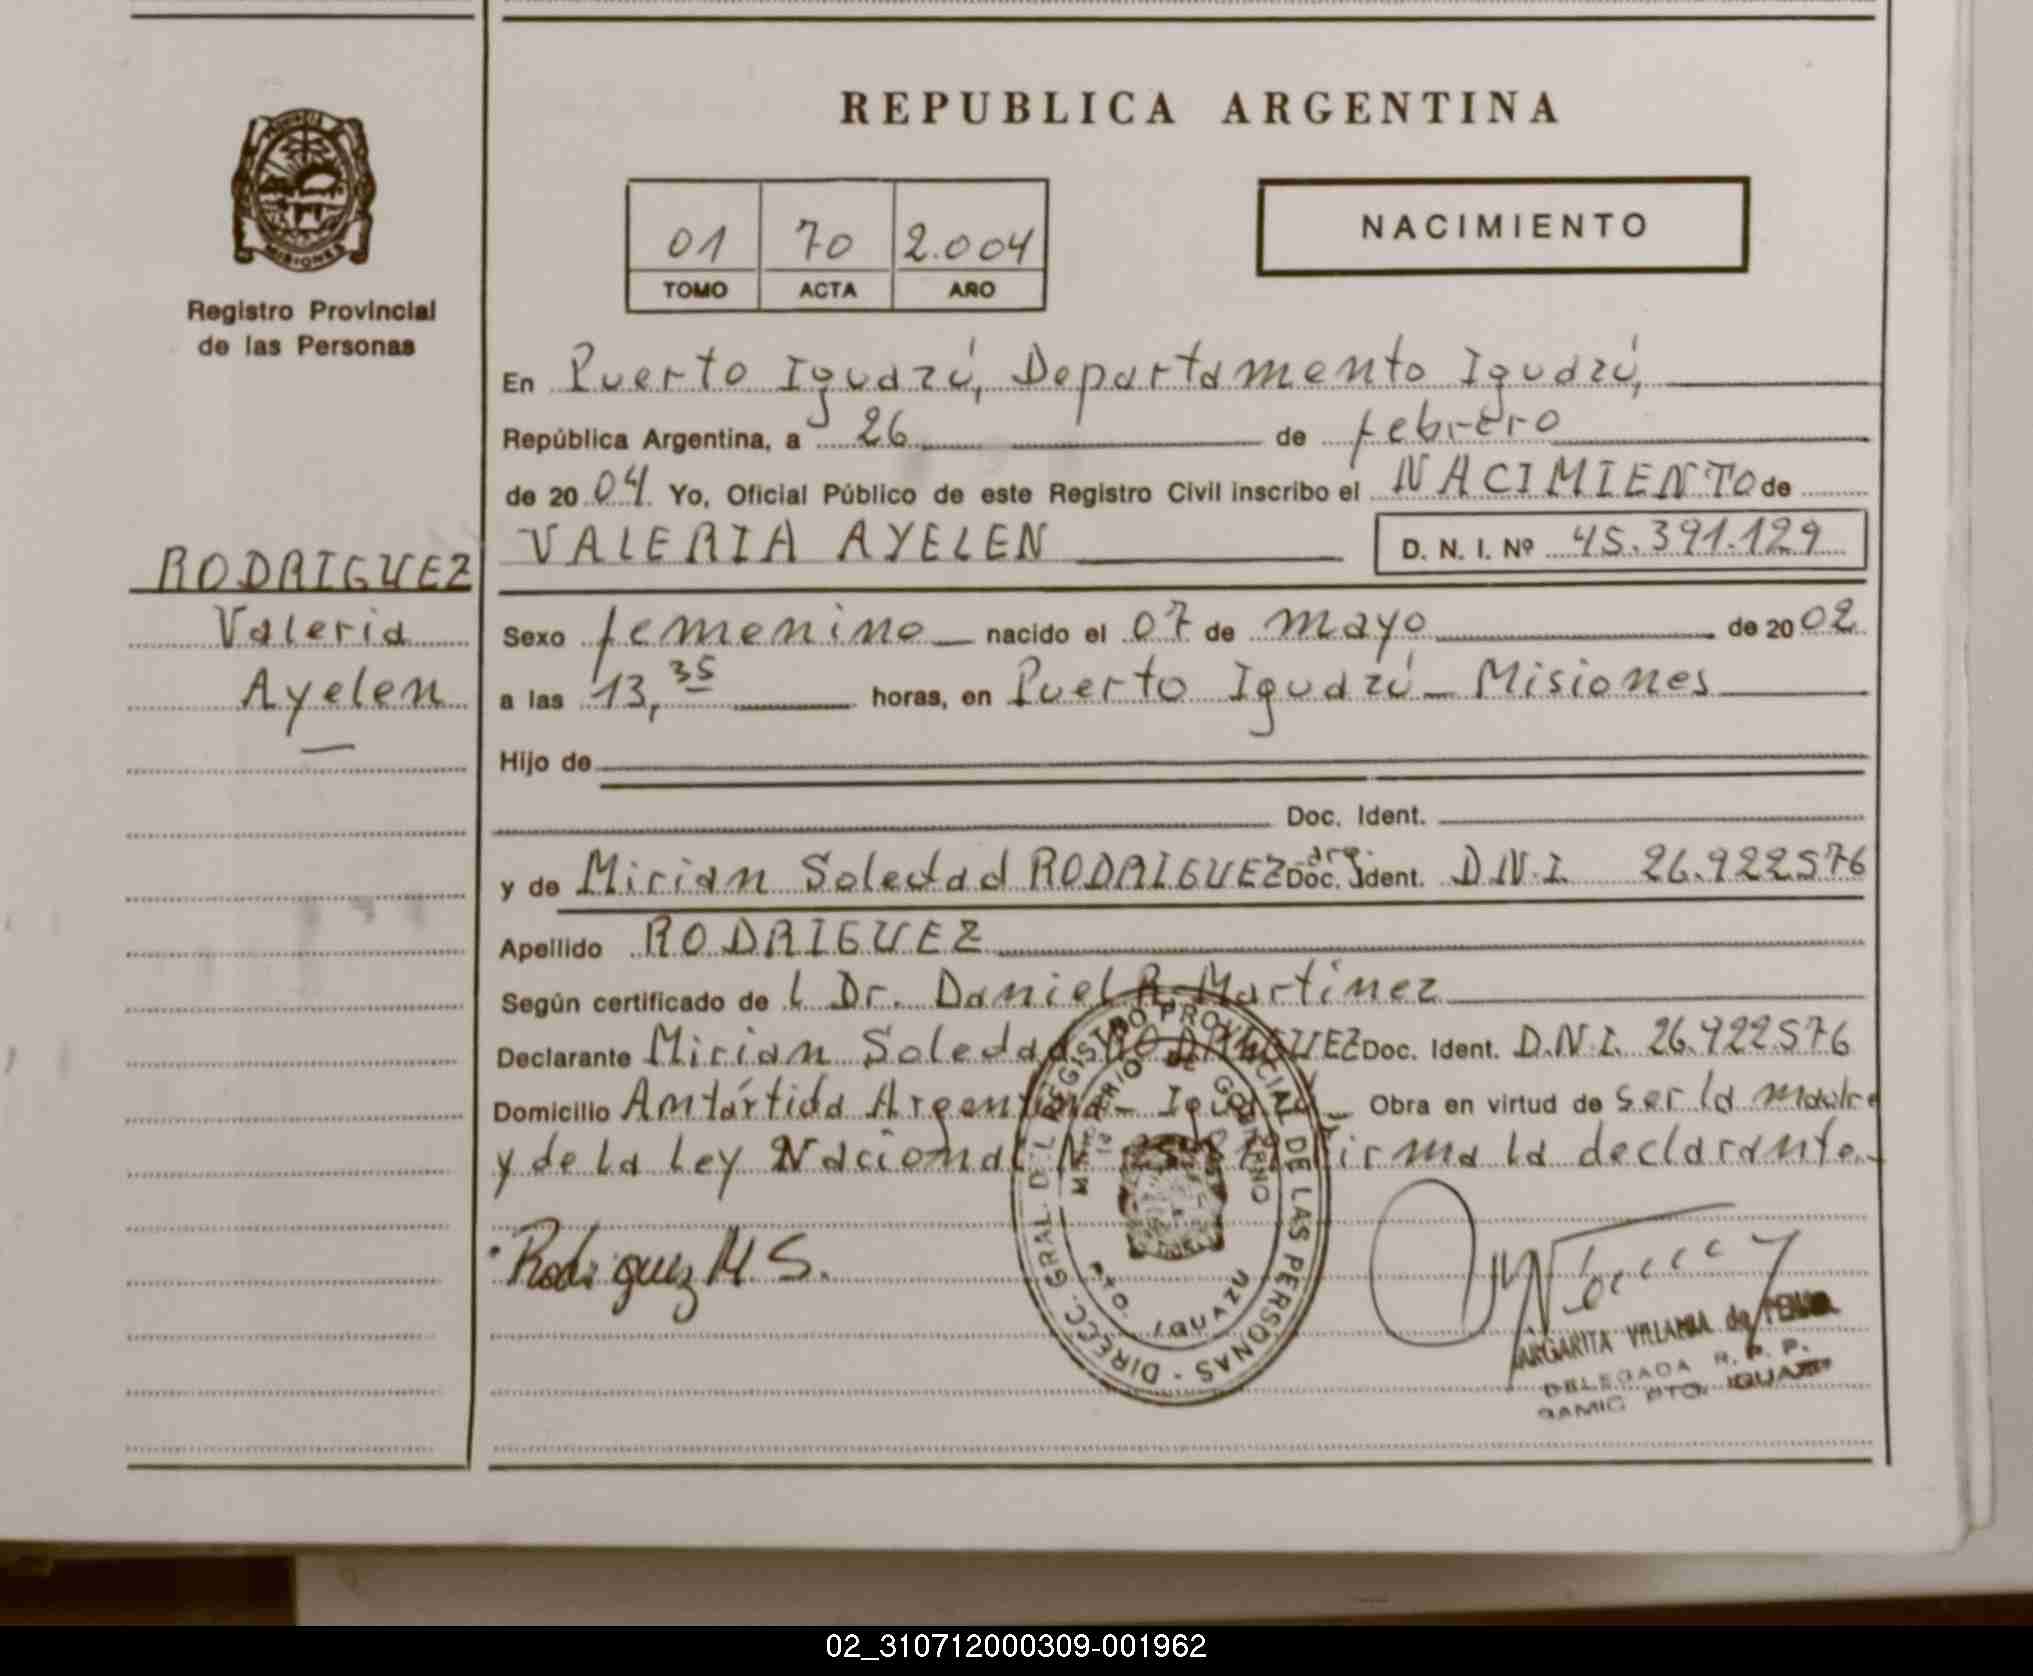 REPUBLICA ARGENTINA
PROVINCIA
MISIONES
Registro Provincial
de las Personas
01 70 2.004
TOMO ACTA AÑO
NACIMIENTO
En Puerto Iguazú, Departamento Iguazú,
República Argentina, a 26 de febrero
de 2004 Yo, Oficial Público de este Registro Civil inscribo el NACIMIENTO de
VALERIA AYELEN D. N. I. Nº 45.391.129
RODRIGUEZ
Valeria
Ayelen
Sexo femenino nacido el 07 de mayo de 2002
a las 13,35 horas, en Puerto Iguazú - Misiones
Hijo de
Doc. Ident.
y de Mirian Soledad RODRIGUEZ arg. Doc. Ident. D.N.I. 26.922576
Apellido RODRIGUEZ
Según certificado de l Dr. Daniel R. Martinez
Declarante Mirian Soledad RODRIGUEZ Doc. Ident. D.N.I. 26.922576
Domicilio Antártida Argentina - Iguazú - Obra en virtud de ser la madre
y de la Ley Nacional firma la declarante.-
Rodriguez M. S.
DIRECC. GRAL. DEL REGISTRO PROVINCIAL DE LAS PERSONAS -
MINISTERIO DE GOBIERNO
PTO. IGUAZU
MARGARITA VILLALBA de
DELEGADA R. P. P.
SAMIC PTO. IGUAZU
02_310712000309-001962